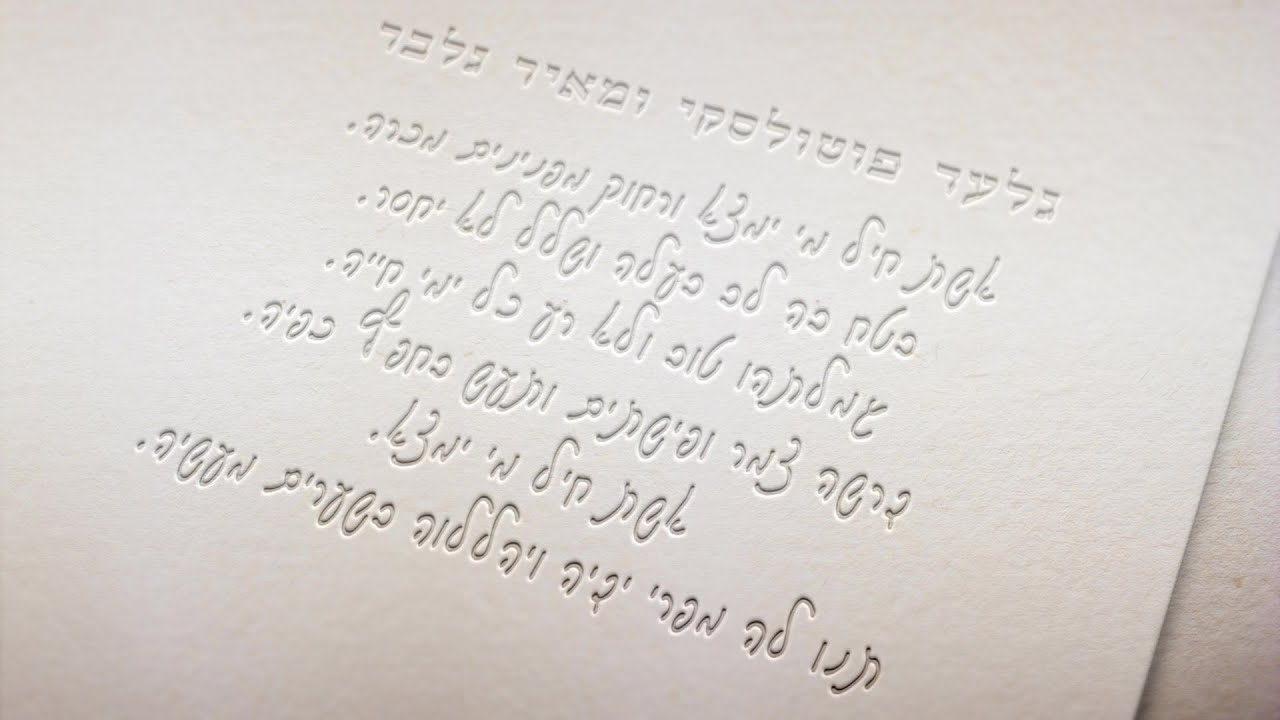 גלעד פוטולסקי ומאיר גלבר
אשת חיל מי ימצא ורחוק מפנינים מכרה.
בטח בה לב בעלה ושלל לא יחסר.
גמלתהו טוב ולא רע כל ימי חייה.
דרשה צמר ופישתים ותעש בחפץ כפיה.
אשת חיל מי ימצא.
תנו לה מפרי ידיה ויהללוה בשערים מעשיה.